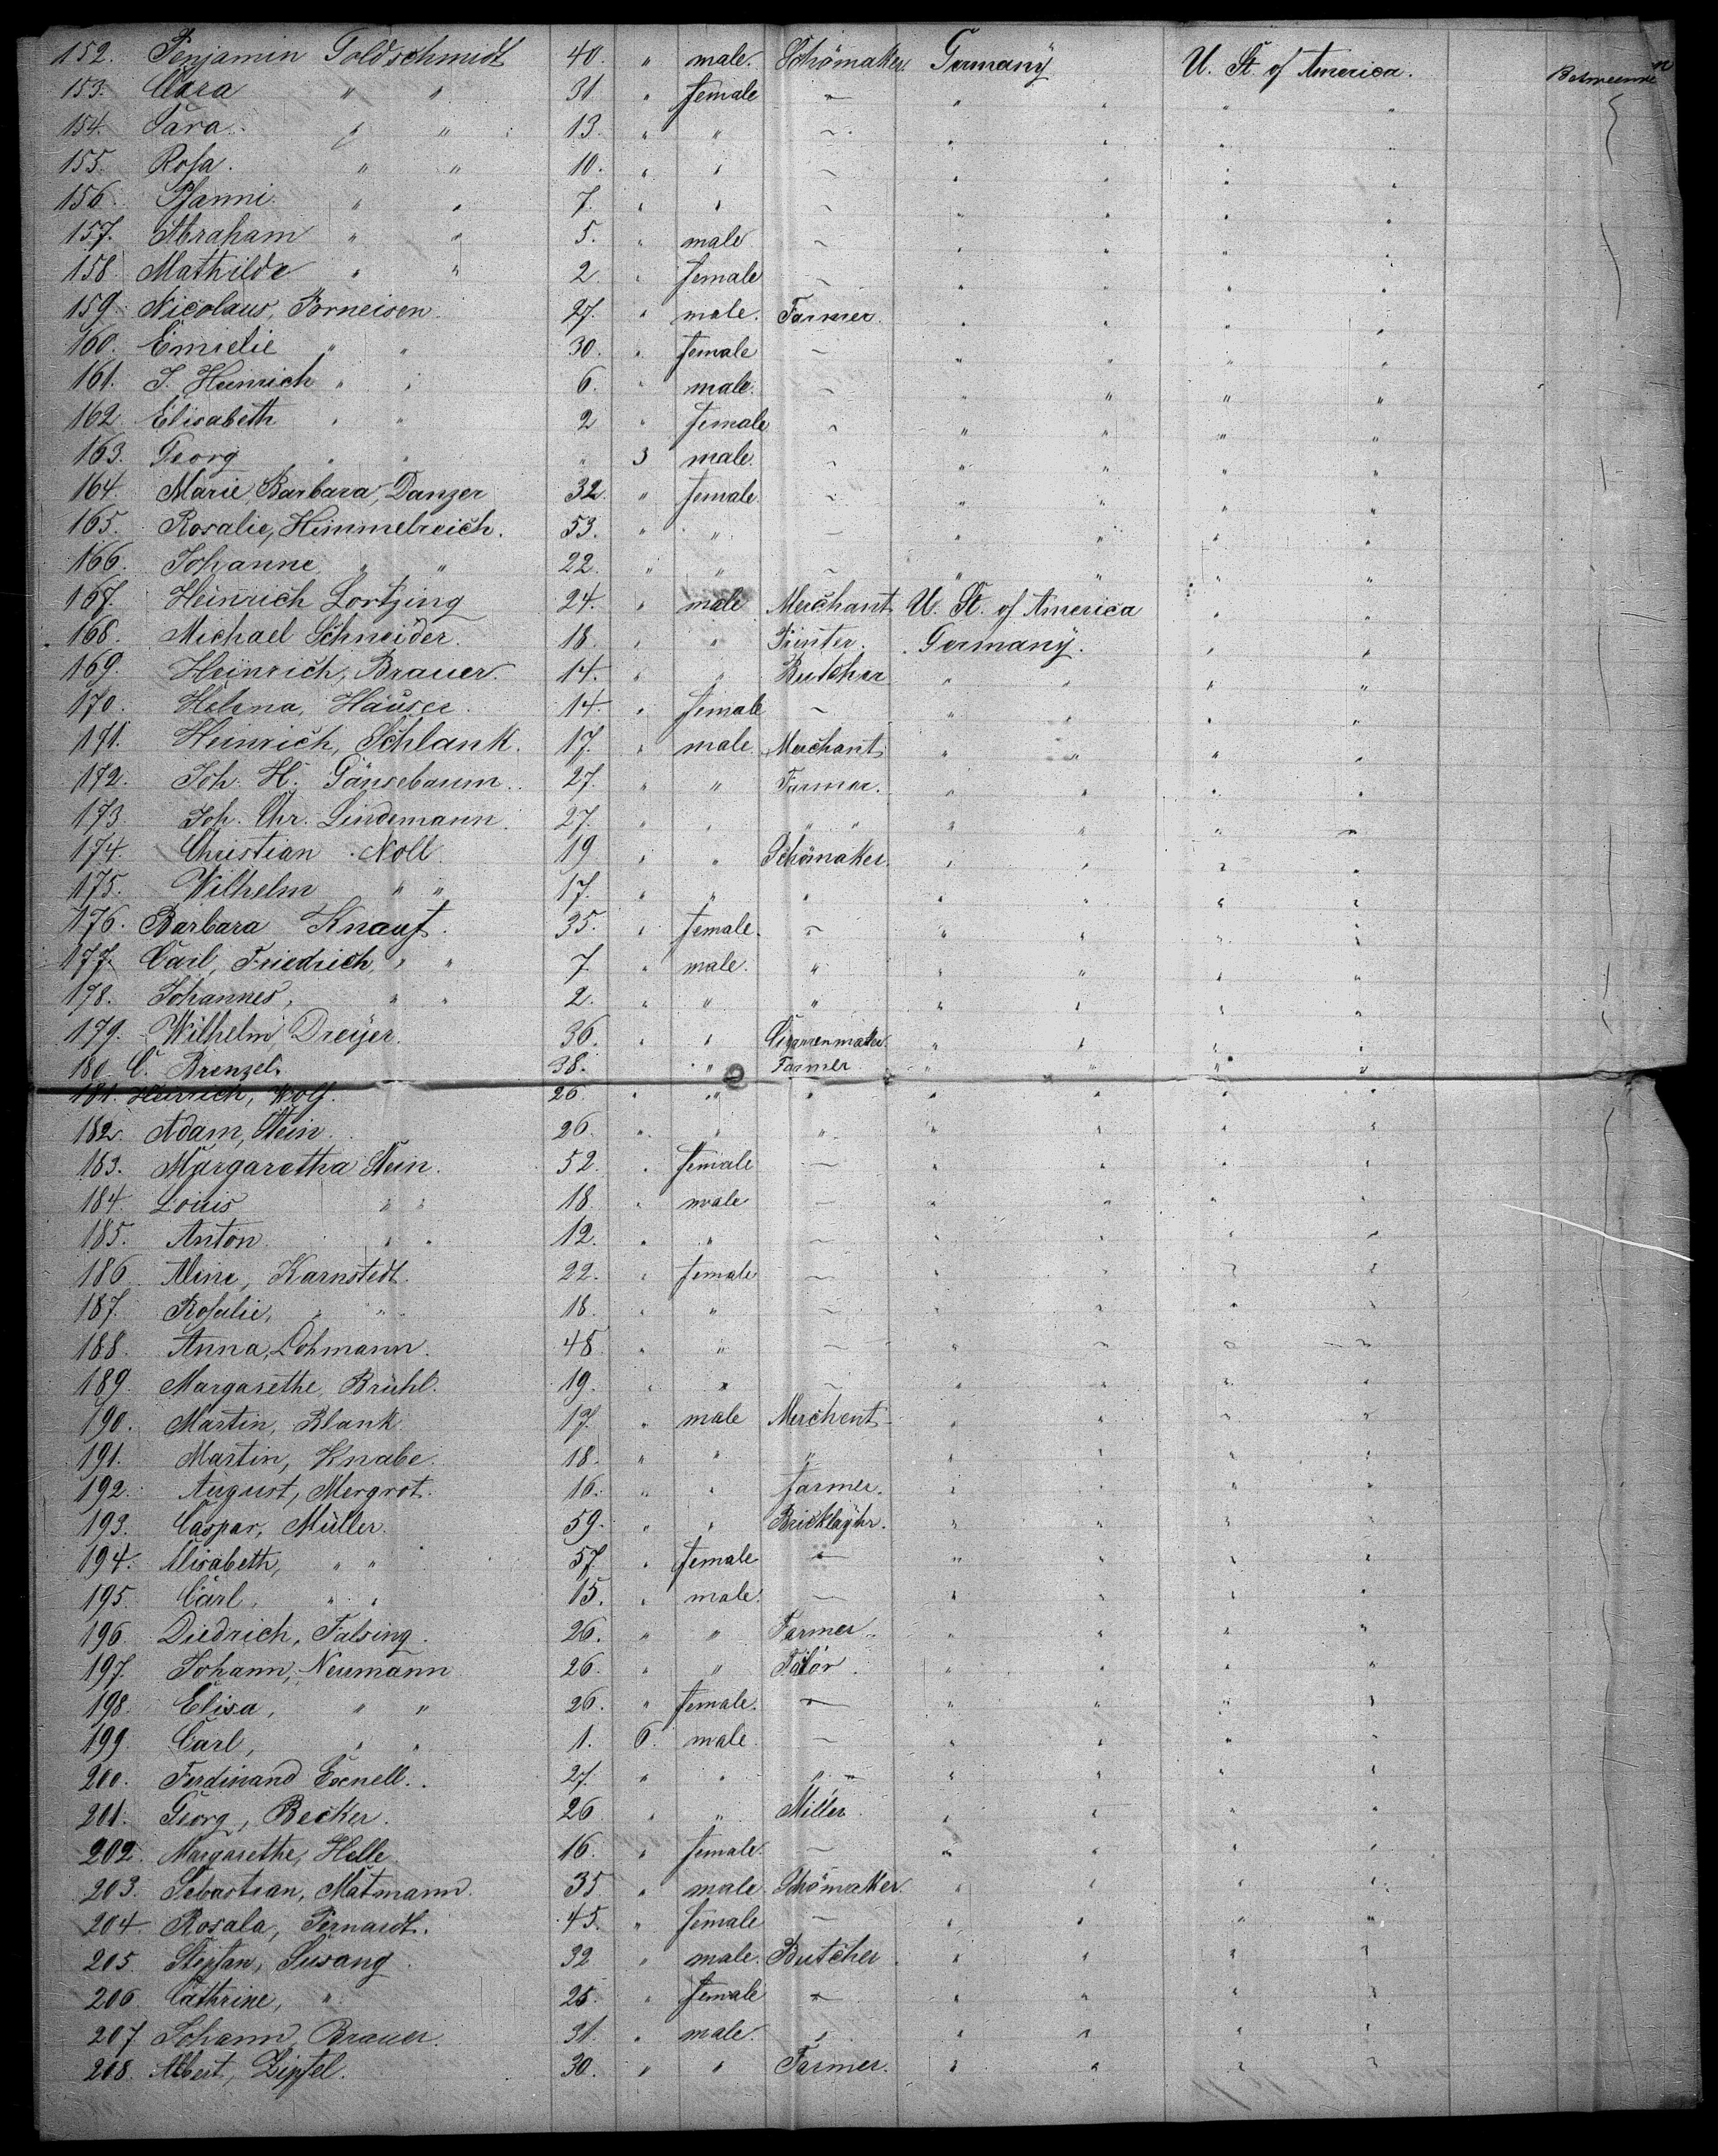 152. Benjamin Goldschmidt 40. " male. Schömaker. Germany U. St. of America. Between
153. Clara " " 31. " female ~ " " " "
154. Sara. " " 13. " " ~ " " " "
155. Rosa. " " 10. " " ~ " " " "
156. Fanni. " " 7. " " ~ " " " "
157. Abraham " " 5. " male ~ " " " "
158. Mathilde " " 2 " female ~ " " " "
159. Nicolaus, Forneisen. 27. " male. Farmer. " " " "
160. Emielie " " 30. " female ~ " " " "
161. J. Heinrich " " 6. " male. ~ " " " "
162. Elisabeth " " 2 " female ~ " " " "
163. Georg " " " 3 male. ~ " " " "
164. Marie Barbara, Danzer 32. " female. ~ " " " "
165. Rosalie, Himmelreich. 53. " " ~ " " " "
166. Johanne " " 22. " " ~ " " " "
167. Heinrich Lortzing 24. " male Merchant U. St. of America " "
168. Michael Schneider. 18. " " Printer. Germany. " "
169. Heinrich, Brauer. 14. " " Butcher " " " "
170. Helena, Häuser. 14. " female ~ " " " "
171. Heinrich, Schlank. 17. " male. Merchant " " " "
172. Joh. H. Gänsebaum. 27. " " Farmer. " " " "
173. Joh. Chr. Lindemann. 27. " " " " " " " "
174. Christian Noll 19 " " Schömaker. " " " "
175. Wilhelm " " 17. " " " " " " "
176. Barbara Knauf. 35. " female. ~ " " " "
177. Carl, Friedrich, " " 7. " male. " " " " "
178. Johannes, " " 2. " " " " " " "
179. Wilhelm, Dreyer. 36. " " Cigarrenmaker " " " "
180. C. Brenzel. 38. " Farmer " " " "
181. Heinrich, Wolf. 26 " " " " " " "
182. Adam, Stein. 26. " " " " " " "
183. Margaretha Stein. 52. " female ~ " " " "
184. Louis " " 18. " male ~ " " " "
185. Anton. " " 12. " " ~ " " " "
186. Aline, Karnstedt. 22. " female ~ " " " "
187. Rosalie, " " 18. " " ~ " " " "
188. Anna, Dohmann. 48. " " ~ " " " "
189. Margarethe, Brühl. 19. " " ~ " " " "
190. Martin, Blank. 17. " male Merchent " " " "
191. Martin, Knabe. 18. " " " " " " "
192. August, Mergrot. 16. " " farmer. " " " "
193. Caspar, Müller. 59. " " Bricklayhr. " " " "
194. Elisabeth, " " 57. " female ~ " " " "
195. Carl, " " 15. " male. ~ " " " "
196. Diedrich, Falsing. 26. " " Farmer. " " " "
197. Johann, Neumann 26. " " Tälor. " " " "
198. Elisa, " " 26. " female. ~ " " " "
199. Carl, " " 1. 6. male. ~ " " " "
200. Ferdinand 27. " " " " " " "
201. Georg, Becker. 26 " " Miller. " " " "
202. Margarethe, Helle. 16. " female. ~ " " " "
203. Sebastian, Matmann. 35 " male. Schömaker. " " " "
204. Rosala, Bernardt. 45. " female ~ " " " "
205. Stepfan, Susang. 32 " male. Butcher. " " " "
206. Cathrine, " 25. " female ~ " " " "
207. Johann, Brauer. 31. " male. " " " " "
208. Albert, Zipfel. 30. " " Farmer. " " " "